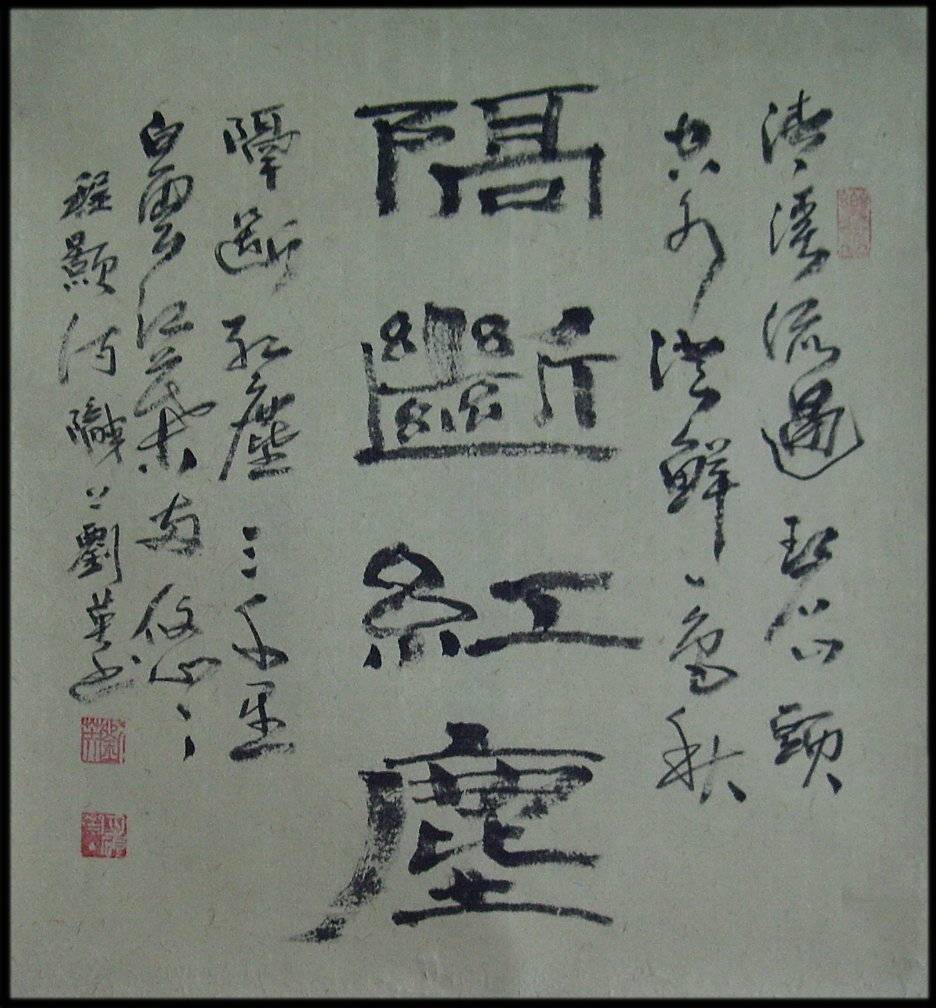 清溪流過碧山頭
空水澄鮮一色秋
隔斷紅塵
隔斷紅塵三千里
白雲紅葉兩悠〻
程顥詩 隴上劉英書